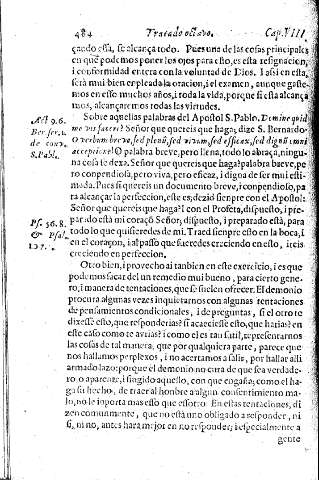 484 Tratado octavo. Cap. VIII
çando essa, se alcança todo. Pues una de las cosas principales
en que podemos poner los ojos para esto, es esta resignacion,
i conformidad entera con la voluntad de Dios. I assi en esta,
será mui bien empleada la oracion, i el examen, aunque gaste-
mos en esso muchos años, i toda la vida, porque si esta alcança-
mos, alcançaremos todas las virtudes.
Sobre aquellas palabras del Apostol S. Pablo, Domine quid
me vis facere? Señor que quereis que haga; dize S. Bernardo:
O verbum breve, sed plenū, sed vivum, sed efficax, sed dignū omni
acceptione! O palabra breve, pero llena, todo lo abraça, ningu-
na cosa te dexa. Señor que quereis que haga? palabra breve, pe
ro conpendiosa, pero viva, pero eficaz, i digna de ser mui esti-
mada. Pues si quereis un documento breve, i conpendioso, pa
ra alcançar la perfeccion, este es; dezid siempre con el Apostol:
Señor que quereis que haga? I con el Profeta, dispuesto, i pre-
parado está mi coraçõ Señor, dispuesto, i preparado está, para
todo lo que quisieredes de mi. Traed sienpre esto en la boca, i
en el coraçon, i al passo que fueredes creciendo en esto, ireis
creciendo en perfeccion.
Otro bien, i provecho ai tanbien en este exercicio, i es que
podemos sacar del un remedio mui bueno, para cierto gene-
ro, i manera de tentaciones, que se suelen ofrecer. El demonio
procura algunas vezes inquietarnos con algunas tentaciones
de pensamientos condicionales, i de preguntas, si el otro te
dixesse esto, que responderias? si acaeciesse esto, que harias? en
este caso como te avrias? i como el es tan sutil, representarnos
las cosas de tal manera, que por qualquiera parte, parece que
nos hallamos perplexos, i no acertamos a salir, por hallar alli
armado lazo: porque el demonio no cura de que sea verdade-
ro, o aparente, i fingido aquello, con que engaña; como el ha-
ga su hecho, de traer al hombre a algun consentimiento ma-
lo, no le inporta mas esso que essotro. En estas tentaciones, di
zen comunmente, que no está uno obligado a responder, ni
si, ni no, antes hara mejor en no responder; i especialmente a
gente
Act. 9. 6.
Ber. ser. 1.
de conv.
S. Pabl.
Ps. 56. 8.
& Psal.
107.